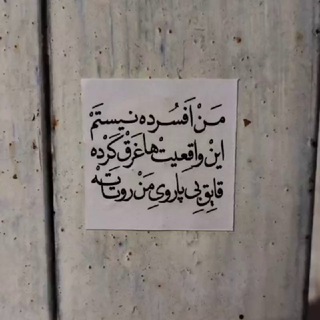 مَنْ اَفسُرده نیستَمْ
این واقِعیت‌ها غَرْق کَرْده
قایِقِ بی پارویِ مَنْ رو تا تَه